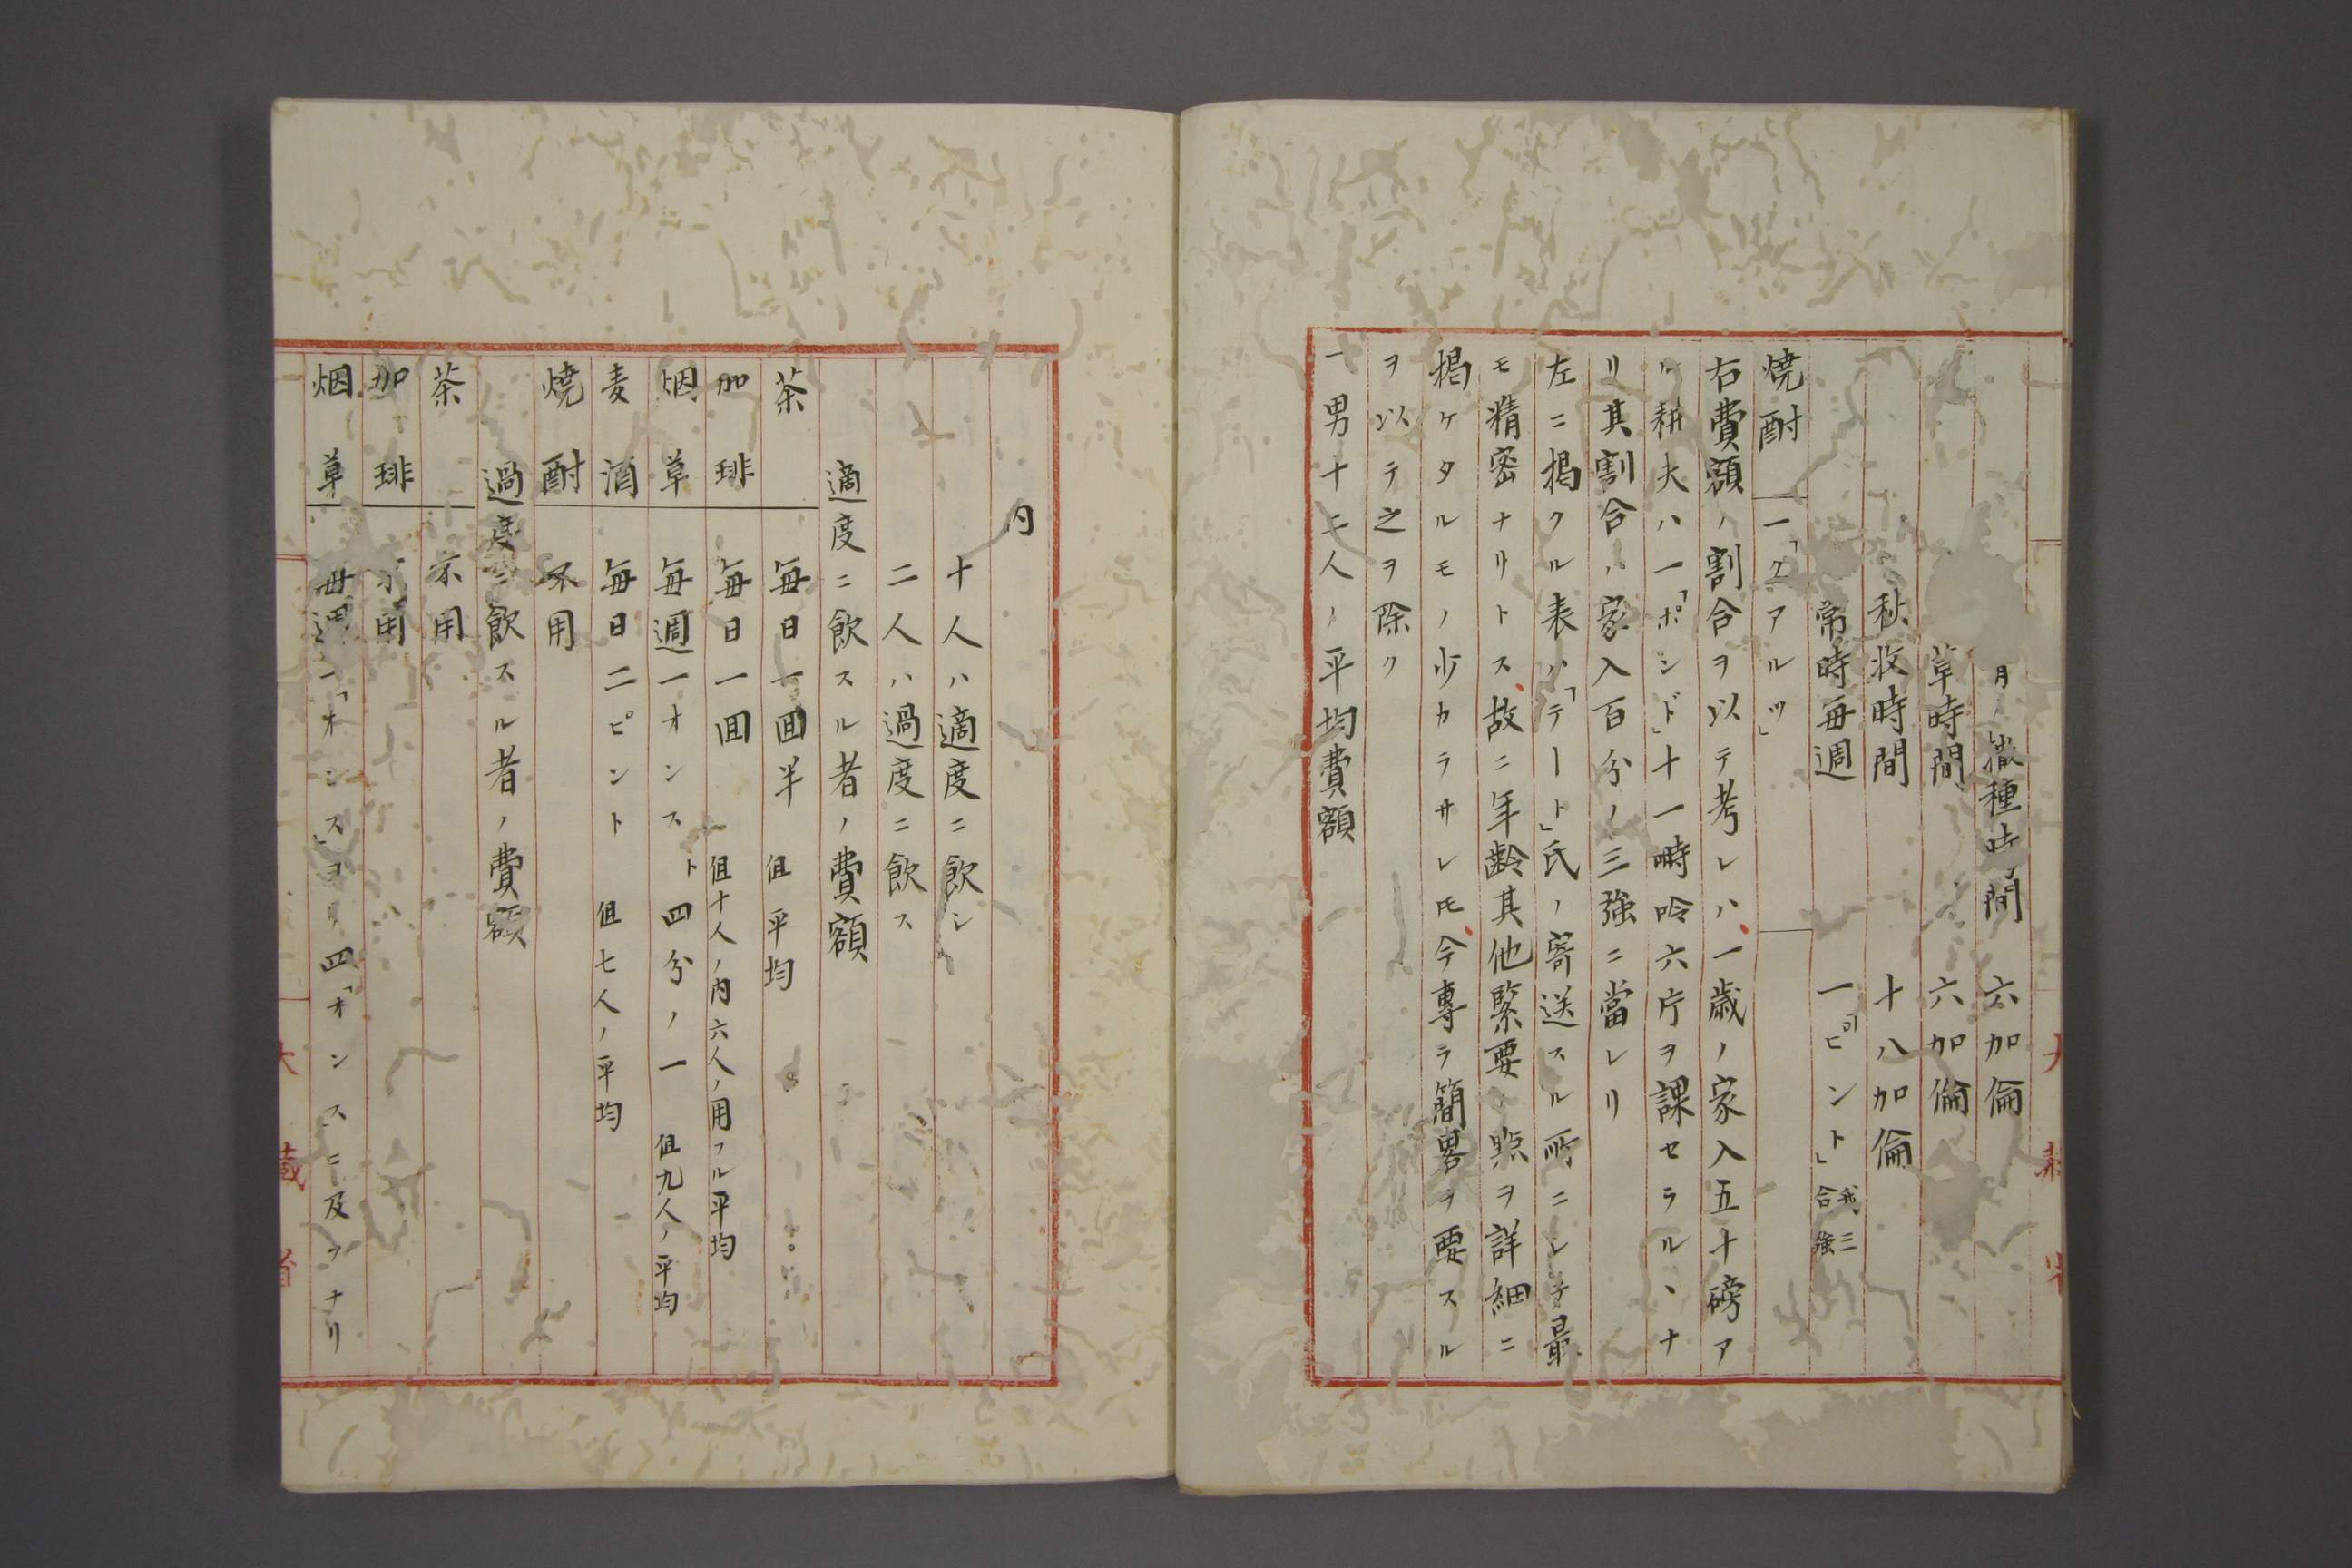 月ノ撒種時間 六加倫
草時間 六加倫
秋收時間 十八加倫
常時毎週 一「ピント」我三合強
焼酎 一「クアルツ」
右費額ノ割合ヲ以テ考レハ一歳ノ家入五十磅ア
ル耕夫ハ一「ポンド」十一時呤六片ヲ課セラルヽナ
リ其割合ハ家入百分ノ三強ニ當レリ
左ニ掲クル表ハ「テート」氏ノ寄送スル所ニシテ最
モ精密ナリトス故ニ年齢其他緊要ノ點ヲ詳細ニ
掲ケタルモノ少カラサレ𪜈今專ラ簡畧ヲ要スル
ヲ以テ之ヲ除ク
一男十二人ノ平均費額
内
十人ハ適度ニ飲シ
二人ハ過度ニ飲ス
適度ニ飲スル者ノ費額
茶 毎日一囬半 但平均
加琲 毎日一囬 但十人ノ内六人ノ用フル平均
烟草 毎週一オンスト四分ノ一 但九人ノ平均
麦酒 毎日二ピント 但七人ノ平均
焼酎 不用
過度ニ飲スル者ノ費額
茶 不用
加琲 不用
烟草 毎週一「オンス」ヨリ四「オンス」ニ及フナリ
大藏省